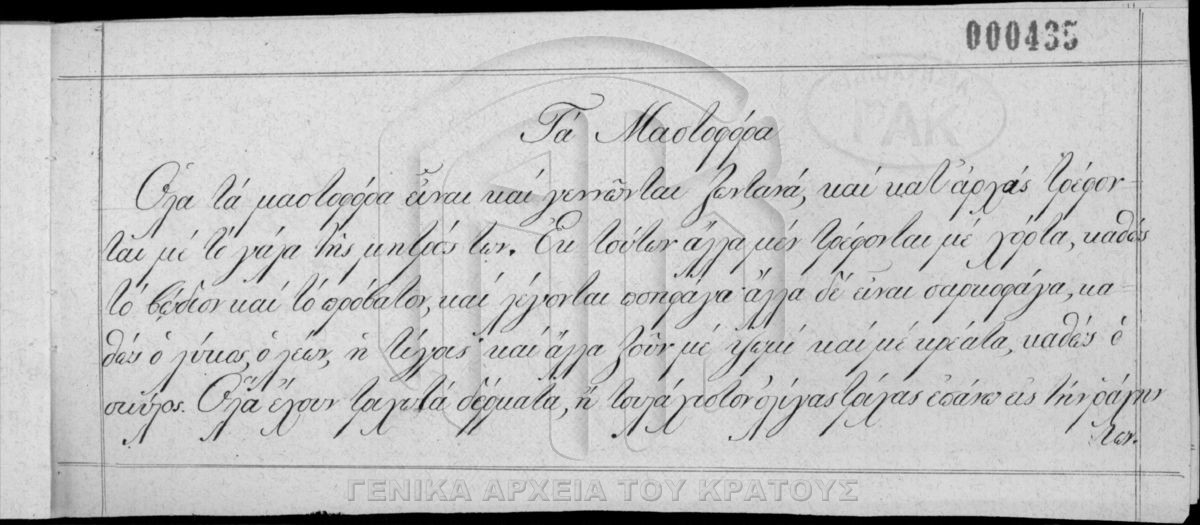 000435
Τά Μαστοφόρα
Ὅλα τά μαστοφόρα εἶναι καί γεννῶνται ζοντανά, καί κατ' ἀρχάς τρέφον-
ται μέ τό γάλα τῆς μητρός των. Ἐκ τούτων ἄλλα μέν τρέφονται μέ χόρτα, καθώς
τό βῴδιον καί τό πρόβατον, καί λέγονται ποηφάγα· ἄλλα δέ εἶναι σαρκοφάγα, κα-
θώς ὁ λύκος, ὁ λέων, ἡ τίγρις· καί ἄλλα ζοῦν μέ ψωμί καί μέ κρέατα, καθώς ὁ
σκύλος. Ὅλα ἔχουν τριχωτά δέρματα, ἤ τουλάχιστον ὀλίγας τρίχας ἐπάνω εἰς τήν ῥάχην
των.
ΓΑΚ
ΓΕΝΙΚΑ ΑΡΧΕΙΑ ΤΟΥ ΚΡΑΤΟΥΣ